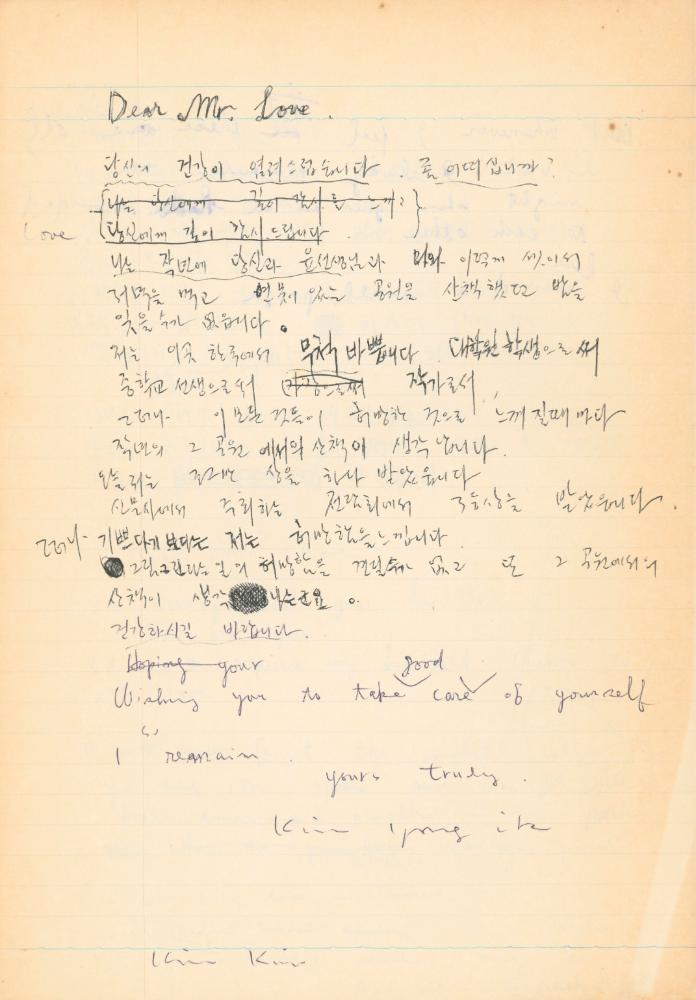 Dear Mr. Love.
당신의 건강이 염려스럽습니다. 좀 어떠십니까?
나는 당신에게 깊이 감사를 느끼
Love 당신에게 깊이 감사드립니다.
나는 작년에 당신과 윤선생님과 이렇게 셋이서
저녁을 먹고 연못이 있는 공원을 산책했던 밤을
잊을 수가 없읍니다.
저는 이곳 한국에서 무척 바쁩니다. 대학원 학생으로써
중학교 선생으로써 작가로서,
그러나 이 모든 것들이 허망한 것으로 느껴질때마다
작년의 그 공원에서의 산책이 생각납니다.
오늘 저는 조그만 상을 하나 받았읍니다
신문사에서 주최하는 전람회에서 3등상을 받았읍니다.
그러나 기쁘다기 보다는 저는 허망함을 느낍니다.
그림 일의 허망함을 견딜수가 없고 또 그 공원에서의
산책이 생각 나는군요.
건강하시길 바랍니다.
Hoping your good
Wishing you to take care of yourself
I remain.
yours truly.
Kim Yong ik
Kim Kim